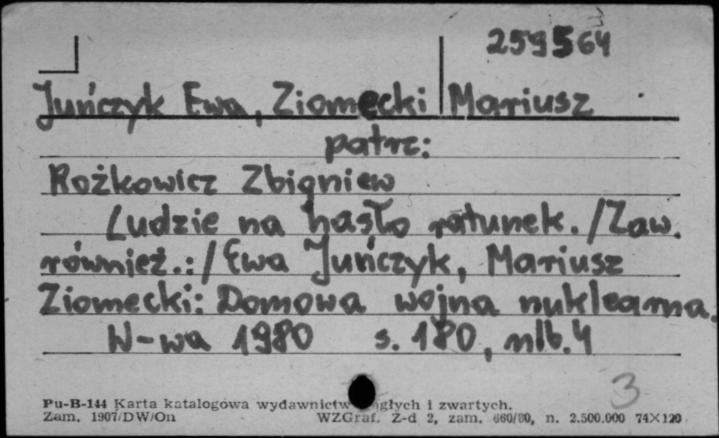 259564
Juńczyk Ewa, Ziomecki Mariusz
patrz:
Rożkowicz Zbigniew
Ludzie na hasło ratunek. /Zaw.
również.:/ Ewa Juńczyk, Mariusz
Ziomecki: Domowa wojna nuklearna.
W-wa 1980 s. 180, nlb. 4
3
Pu-B-144 Karta katalogowa wydawnictw i zwartych.
Zam. 1907/DW/On WZGraf. Z-d 2, zam. 660/80, n. 2.500.000 74×120